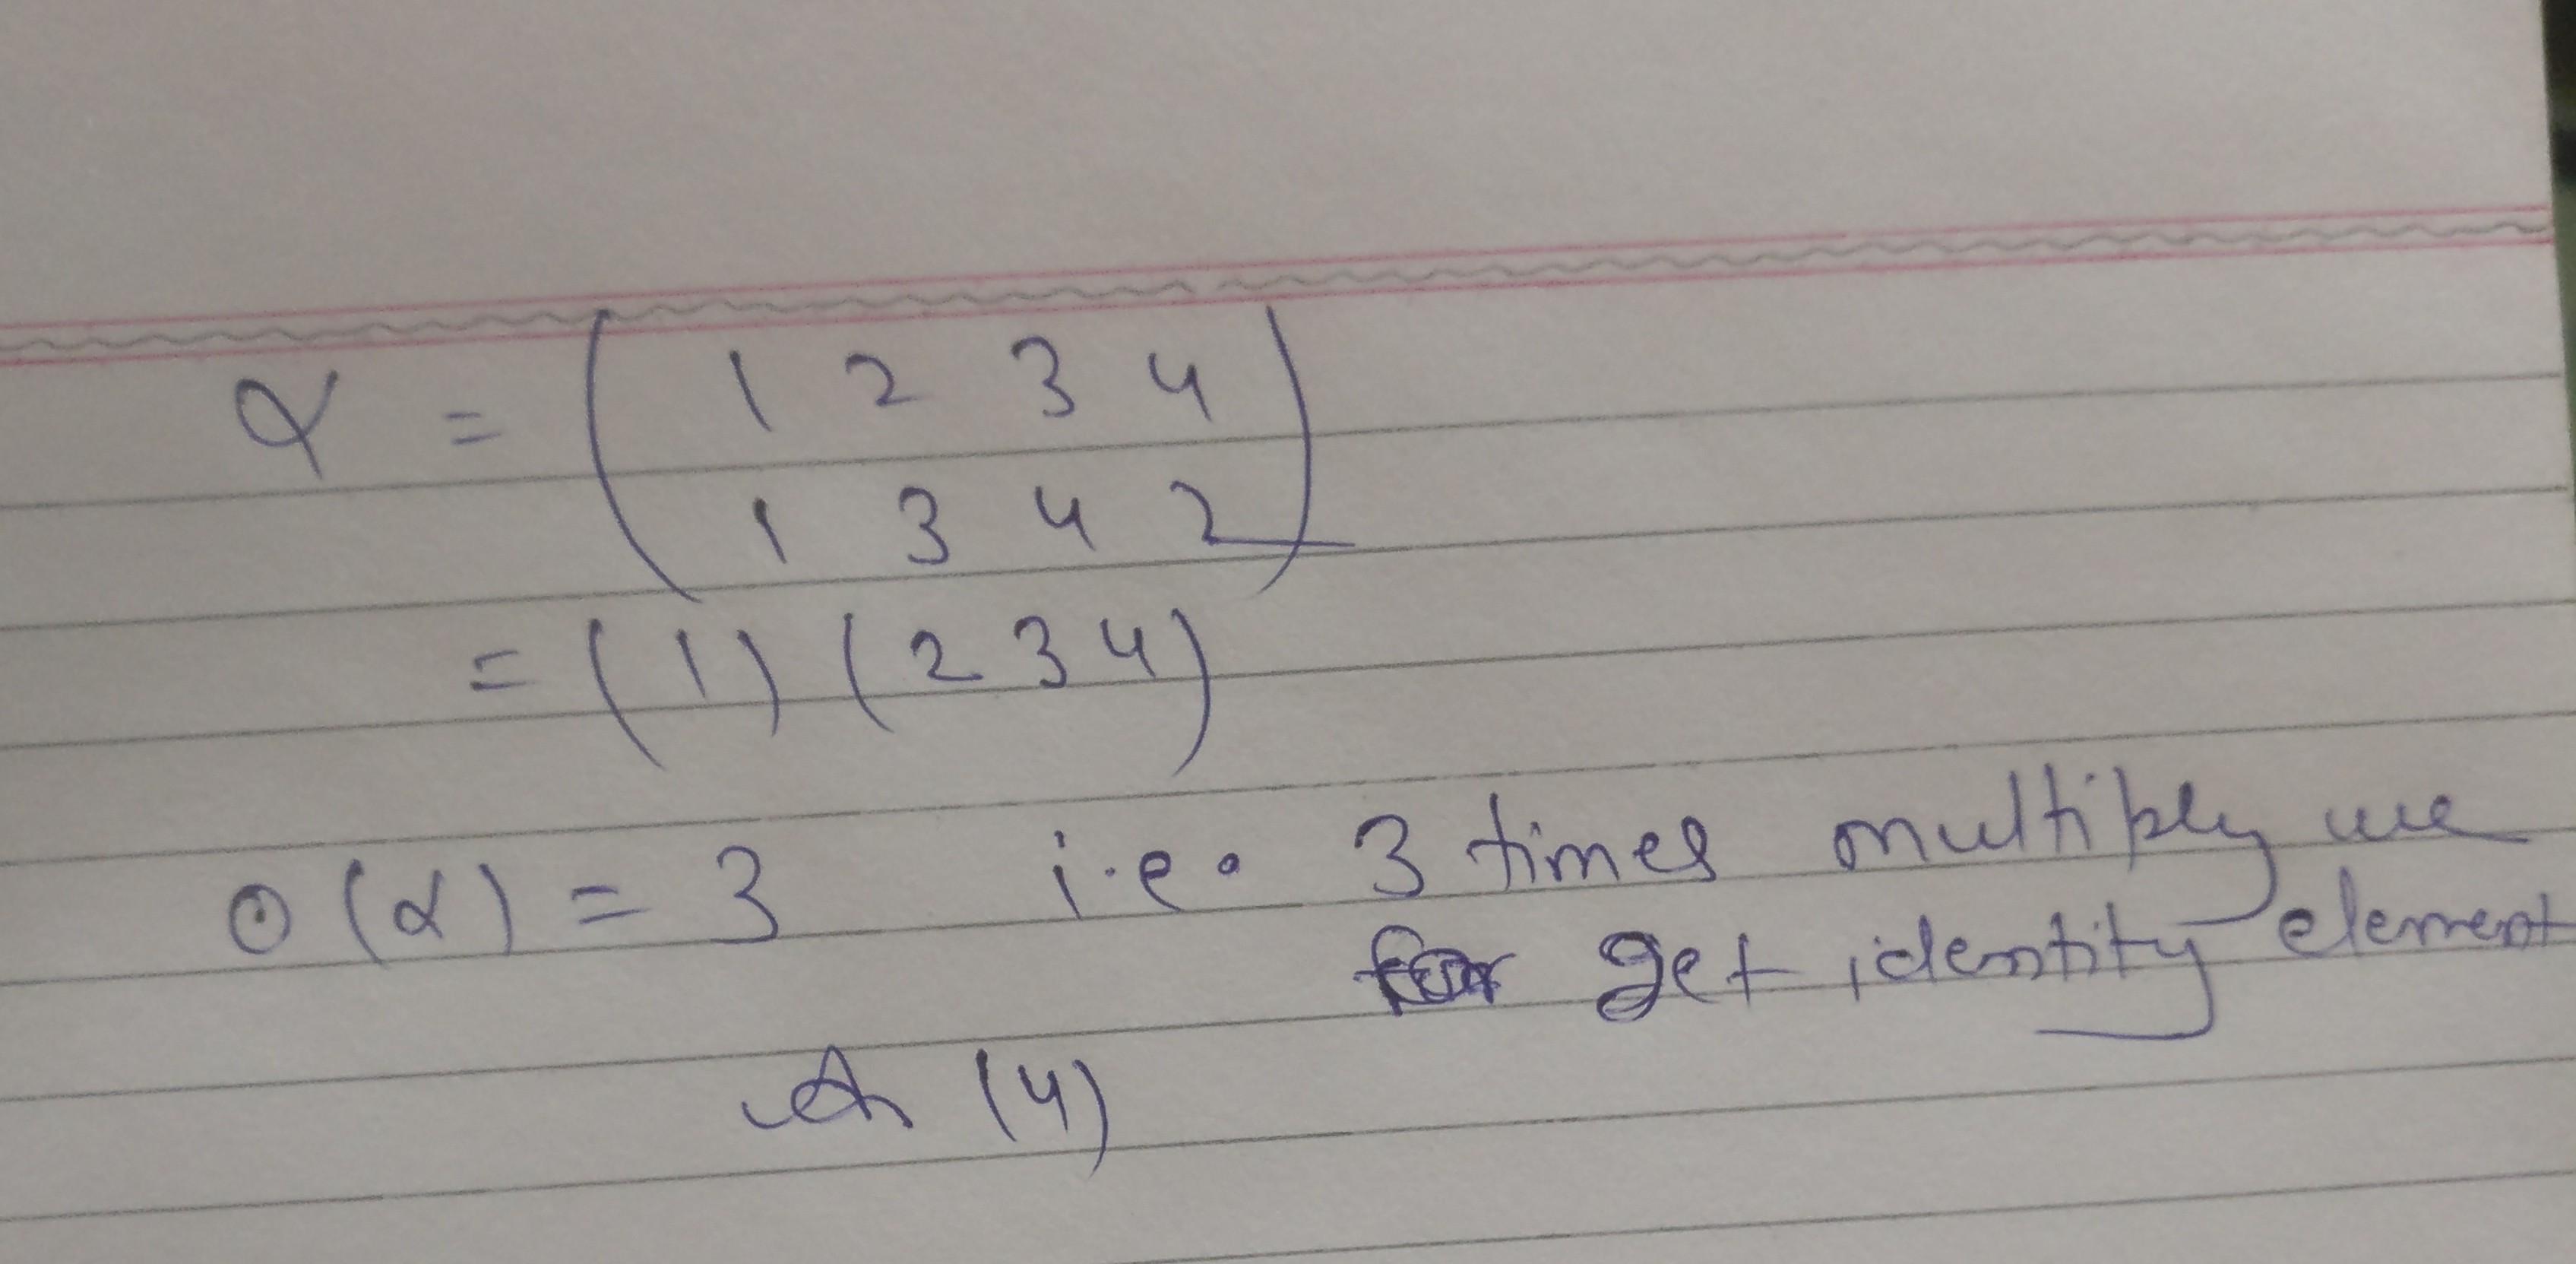 α = ( 1 2 3 4
1 3 4 2 )
= (1) (2 3 4)
O(α) = 3 i.e. 3 times multiply we
for get identity element
(4)